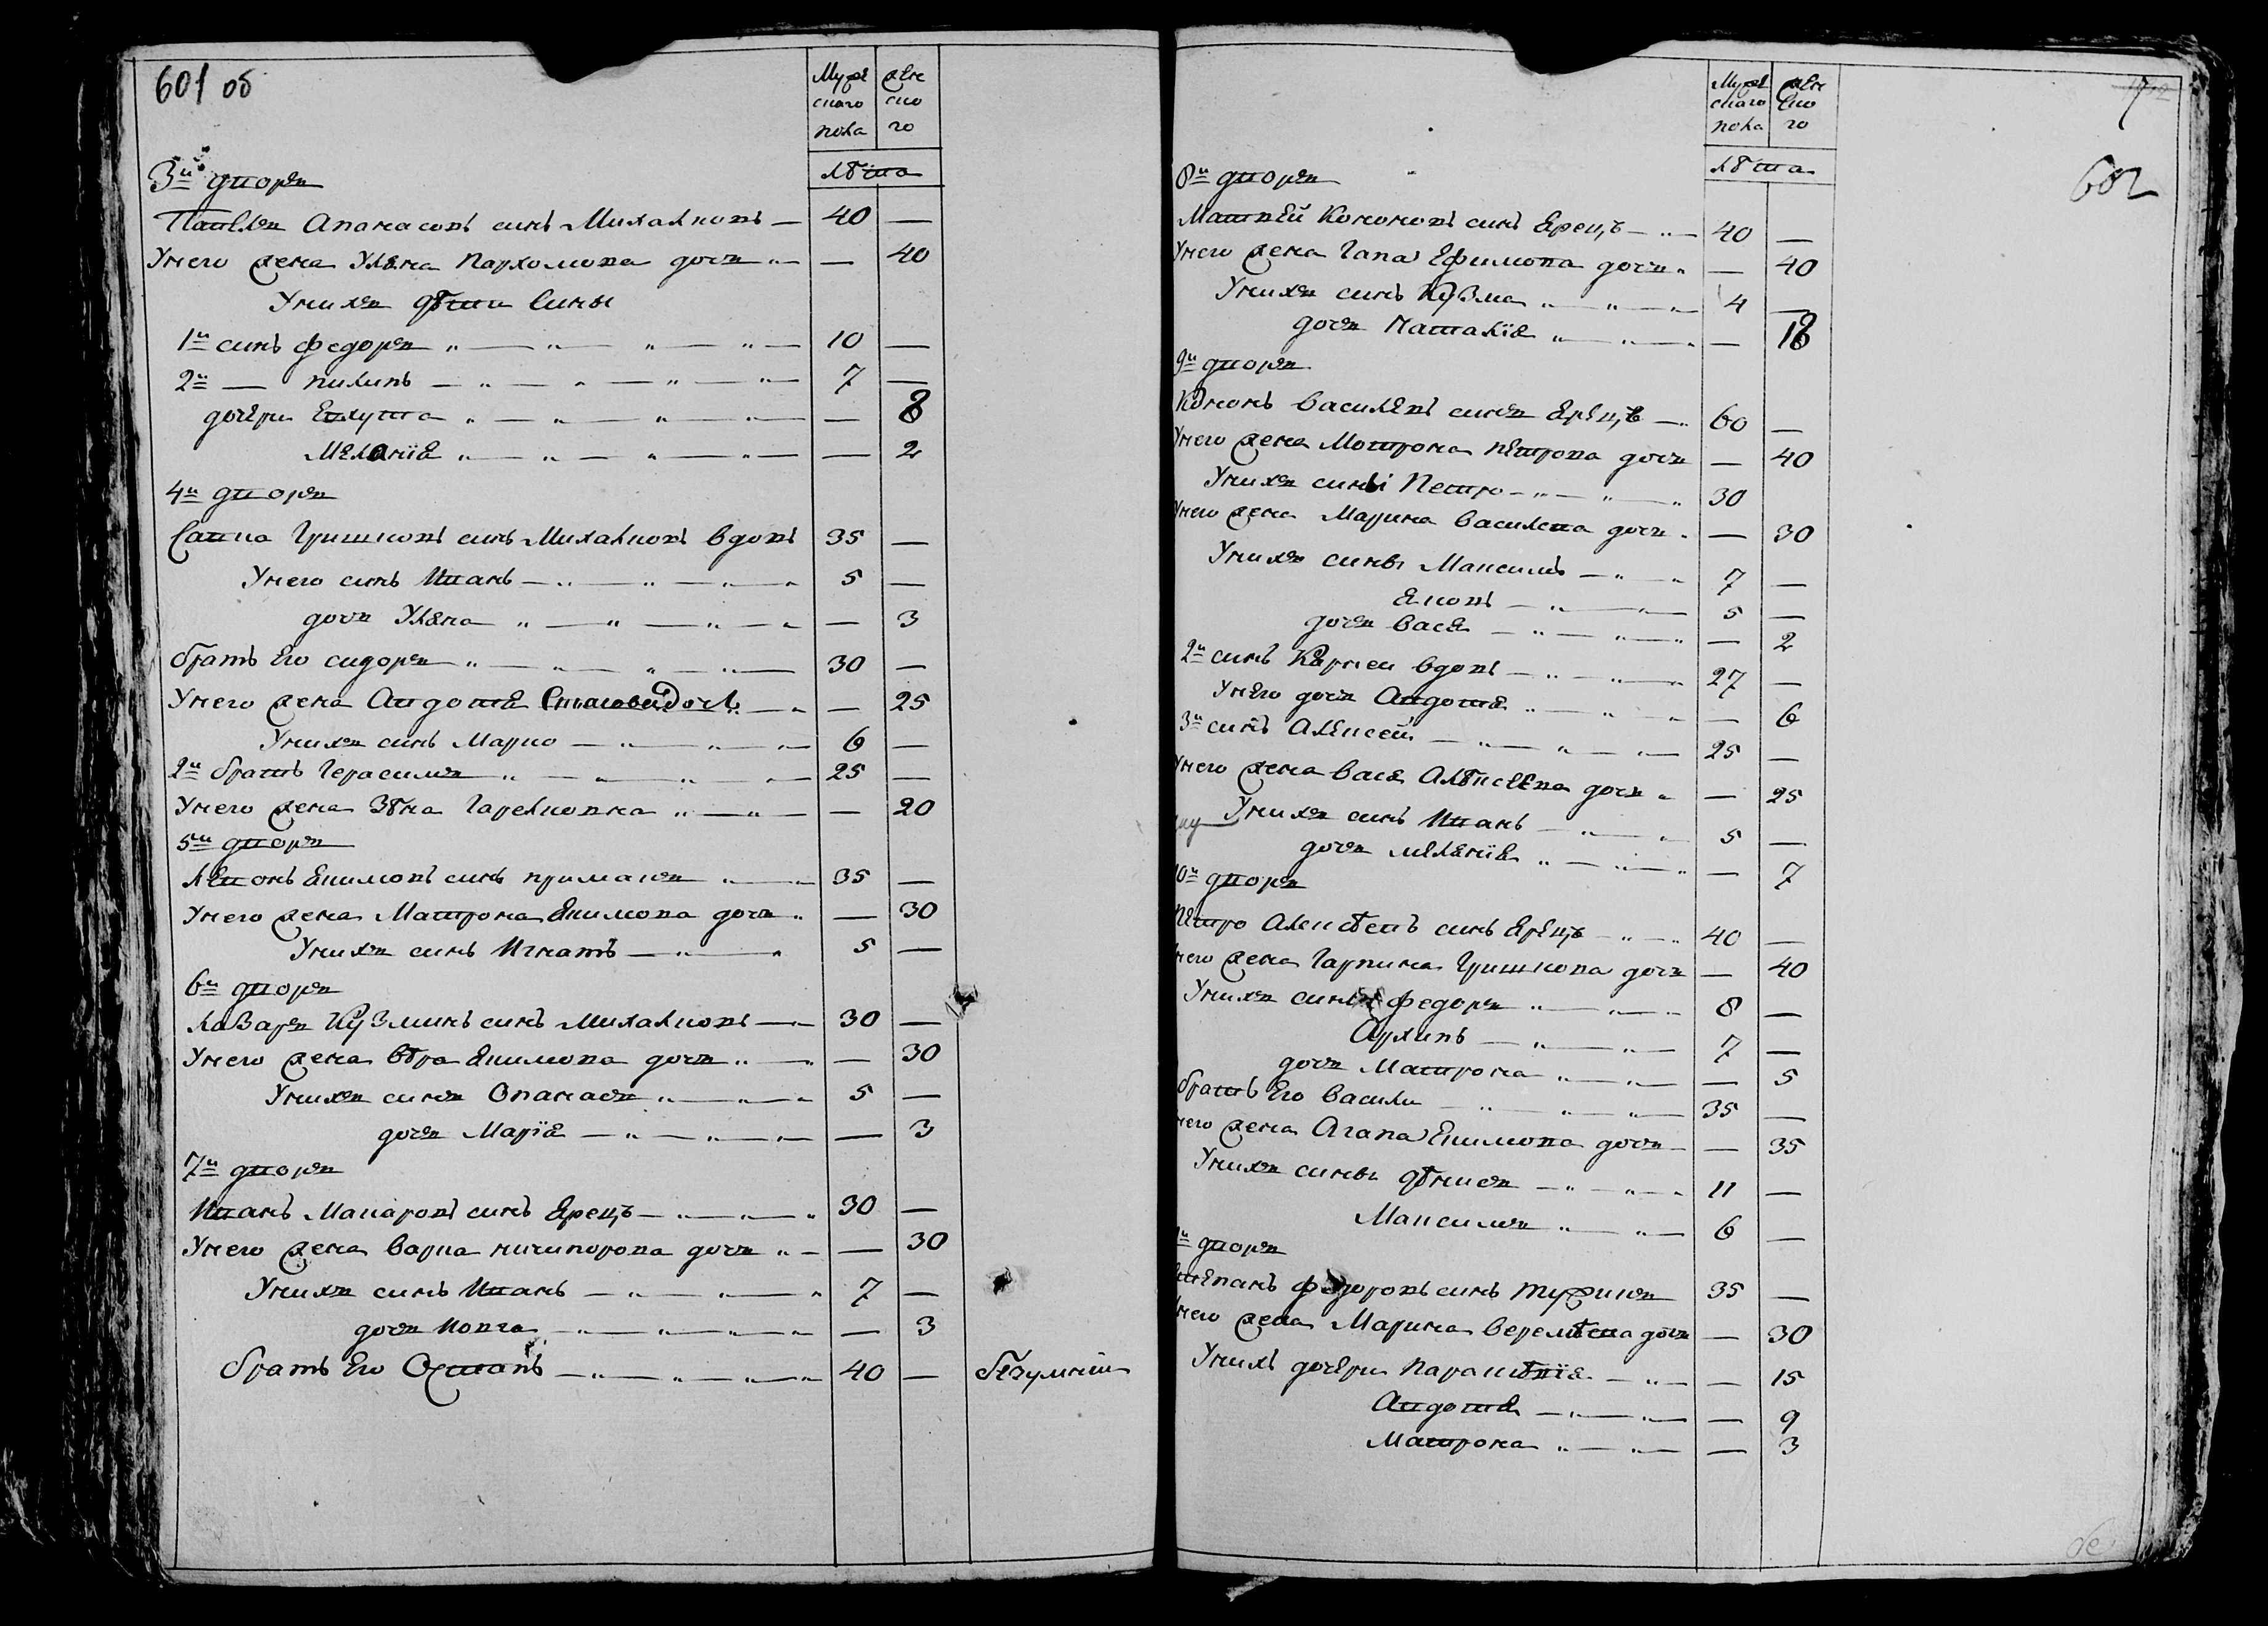 601 об
Мужескаго пола
женского
лѣта
3й дворъ
Павелъ Апанасовъ синъ Михалковъ — 40 —
У него жена Уляна Пархомова дочъ — 40
У нихъ дѣти сины
1й синъ федоръ 10 —
2й — пилипъ 7 —
дочери Евхута — 8
Меланія — 2
4й дворъ
Савка Гришковъ синъ Михалковъ вдовъ 35 —
У него синъ Иванъ 5 —
дочъ Уляна — 3
братъ Его сидоръ 30 —
У него жена Авдотя — 25
У нихъ синъ Марко 6 —
2й братъ Герасимъ 25 —
У него жена Зѣна Гарелковна — 20
5й дворъ
Левонъ Екимовъ синъ примакъ 35 —
У него жена Матрона Екимова дочъ — 30
У нихъ синъ Игнатъ 5 —
6й дворъ
Лазаръ Кузминъ синъ Михалковъ 30 —
У него жена вѣра Екимова дочъ — 30
У нихъ синъ Опанасъ 5 —
дочъ Марія — 3
7й дворъ
Иванъ Макаровъ синъ Ярецъ 30 —
У него жена варка ничипорова дочъ — 30
У нихъ синъ Иванъ 7 —
дочъ Ковга — 3
братъ Его Остапъ 40 — безумній
602
Мужескаго пола
женского
лѣта
8й дворъ
Матвей Кононовъ синъ Ярецъ 40 —
У него жена Гапа Ефимова дочъ — 40
У нихъ синъ Кузма 4 —
дочъ Наталія — 18
9й дворъ
Кононъ василевъ синъ Ярецъ 60 —
У него жена Мотрона петрова дочъ — 40
У нихъ сини Петро 30
У него жена Марина василева дочъ — 30
У нихъ сини Максимъ 7 —
Яковъ 5 —
дочъ вася — 2
2й синъ Карней вдовъ 27 —
У него дочъ Авдотя — 6
3й синъ Алексей 25 —
У него жена вася Алѣксеева дочъ — 25
У нихъ синъ Иванъ 5 —
дочъ меланія — 7
10й дворъ
Петро Алексѣевъ синъ Ярецъ 40 —
него жена Гарпина Гришкова дочъ — 40
У нихъ сини федоръ 8 —
Архипъ 7 —
дочъ Матрона — 5
братъ Его васили 35 —
него жена Агапа Екимова дочъ — 35
У нихъ сини дѣнисъ 11 —
Максимъ 6 —
й дворъ
степанъ федоровъ синъ тужикъ 35 —
него жена Марина веремѣева дочъ — 30
У нихъ дочери парасковія — 15
Авдотя — 9
Матрона — 3